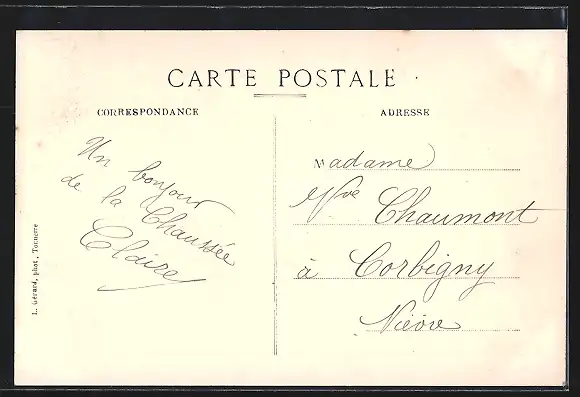 CARTE POSTALE
CORRESPONDANCE
ADRESSE
Un bonjour
de la Chaussée
Claire
Madame
Vve Chaumont
à Corbigny
Nièvre
L. Gérard, phot., Tonnerre